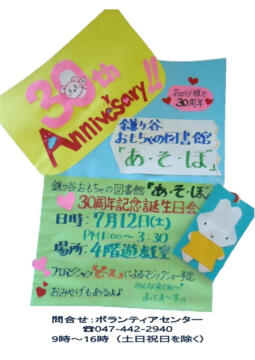 30th
Annivesary!!
おかげ様で
30周年
鎌ヶ谷
おもちゃの図書館
「あ・そ・ぼ」
鎌ヶ谷おもちゃの図書館「あ・そ・ぼ」
30周年記念誕生日会
日時:7月12日(土)
PM1:00～3:30
場所:4階遊戯室
プロマジシャン
によるマジックショー予定
おみやげもあるよ♪
みんな来てね～
まってま～す
問合せ:ボランティアセンター
☎047-442-2940
9時～16時（土日祝日を除く）